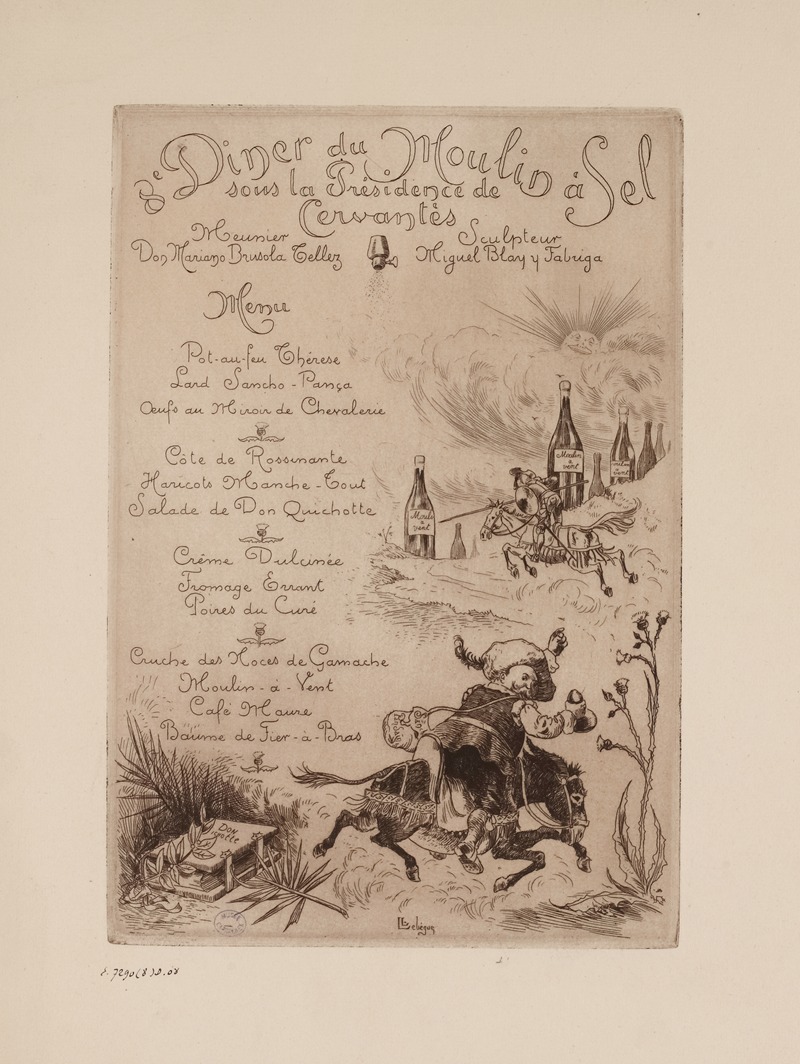 8e Diner du Moulin à Sel
sous la Présidence de
Cervantès
Meunier
Don Mariano Brusola Tellez
Sculpteur
Miguel Blay y Fabriga
Menu
Pot-au-feu Thérese
Lard Sancho-Pança
Œufs au Miroir de Chevalerie
Côte de Rossinante
Haricots Manche-Tout
Salade de Don Quichotte
Crême Dulcinée
Fromage Errant
Poires du Curé
Cruche des Noces de Gamache
Moulin-à-Vent
Café Maure
Baume de Fier-à-Bras
Moulin
à
vent
Moulin
à
vent
Moulin
à
vent
DON
L Lebègue